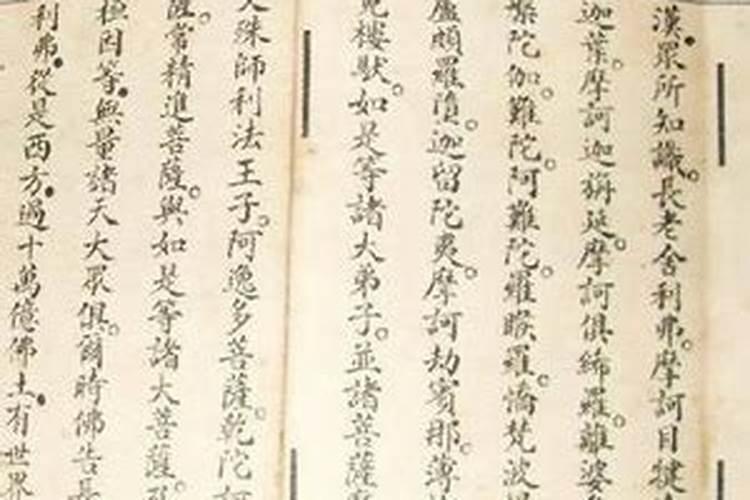 漢眾所知識長老舍利弗摩訶目犍
迦葉摩訶迦旃延摩訶俱絺羅離婆
槃陀伽難陀阿難陀羅睺羅憍梵波
盧頗羅墮迦留陀夷摩訶劫賓那薄
㝹樓馱如是等諸大弟子並諸菩薩
殊師利法王子阿逸多菩薩乾陀訶
薩常精進菩薩與如是等諸大菩薩
桓因等無量諸天大眾俱爾時佛告長
利弗從是西方過十萬億佛土有世界